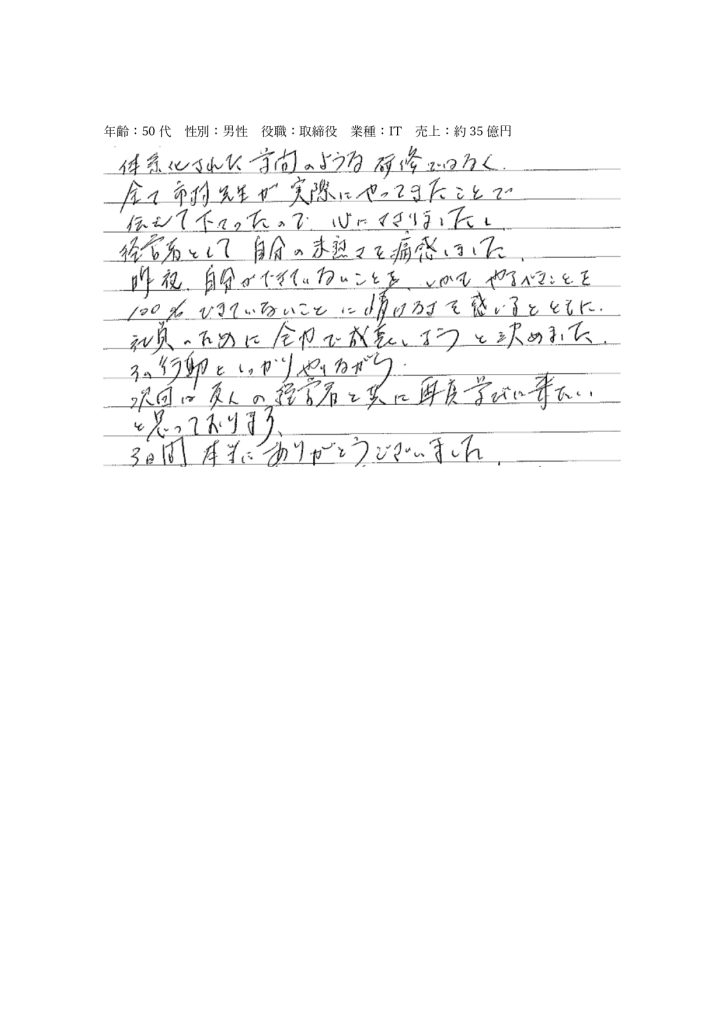 年齢：50代　性別：男性　役職：取締役　業種：IT　売上：約35億円
体系化された学問のような研修ではなく、
全て市村先生が実際にやってきたことで
伝えて下さったので心にささりましたし
経営者として自分の未熟さを痛感しました。
昨夜、自分ができていないことを、しかも やるべきことを
100%できていないことに情けなさを感じるとともに、
社員のために全力で成長しようと決めました。
その行動をしっかりやりながら、
次回は友人の経営者と共に再度学びに来たい
と思っております。
3日間 本当にありがとうございました。